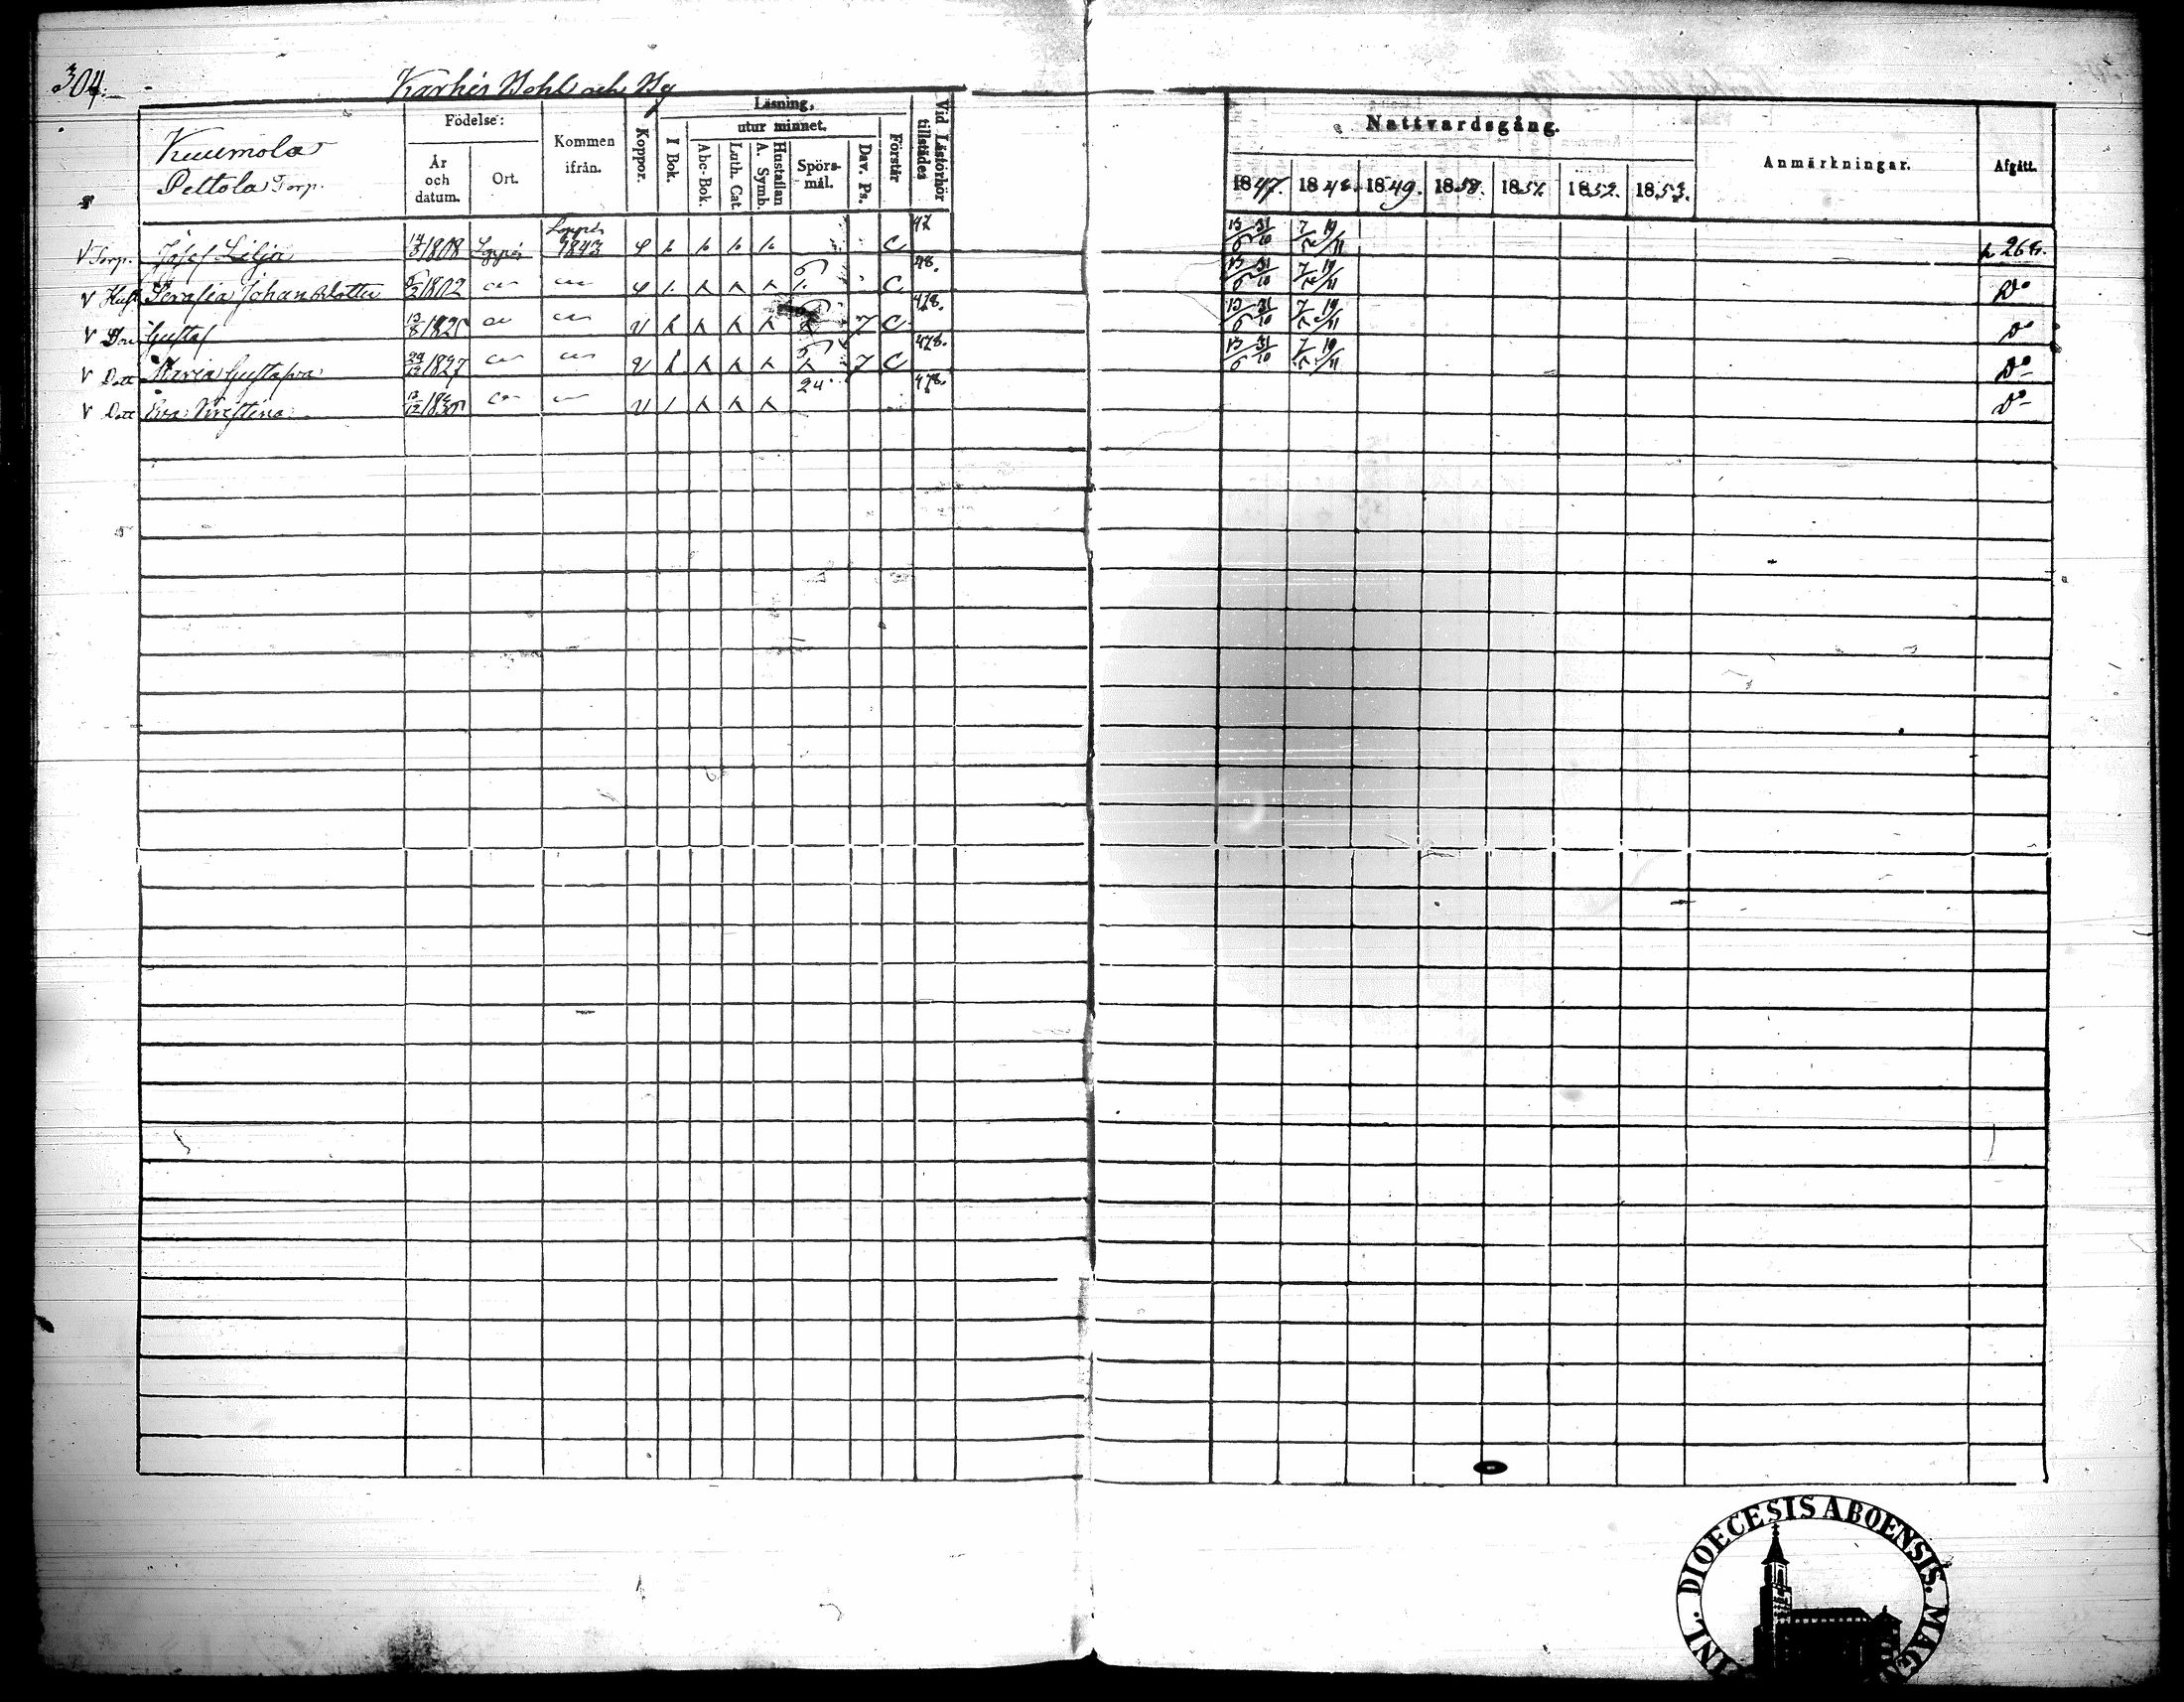 304.
Karhis Bohl och By
Kuumola
Pettola Torp.
Födelse:
År och datum.
Ort.
Kommen ifrån.
Koppor.
Läsning,
I Bok.
utur minnet.
Abc-Bok.
Luth. Cat.
Hustaflan A. Symb.
Spörsmål.
Dav. Ps.
Förstår
Vid Läsförhör tillstädes
Nattvardsgång.
1847. 1848. 1849. 1850. 1851. 1852. 1853.
Anmärkningar.
Afgått.
V Torp. Josef Lilja 14/3 1808 Loppis Loppis 1843 C 47 13/6 31/10 7/5 19/11
V Hust. Serafia Johansdotter 1802 C 48. 13/6 31/10 7/5 19/11 Do
V Son Gustaf 13/8 1825 7 C 478. 13/6 31/10 7/5 19/11 Do
V Dott Maria Gustafva 29/12 1827 7 C 478. 13/6 31/10 7/5 19/11 Do
V Dott Eva Kristina 24 478. Do
FINL. DIOECESIS ABOENSIS. MAG